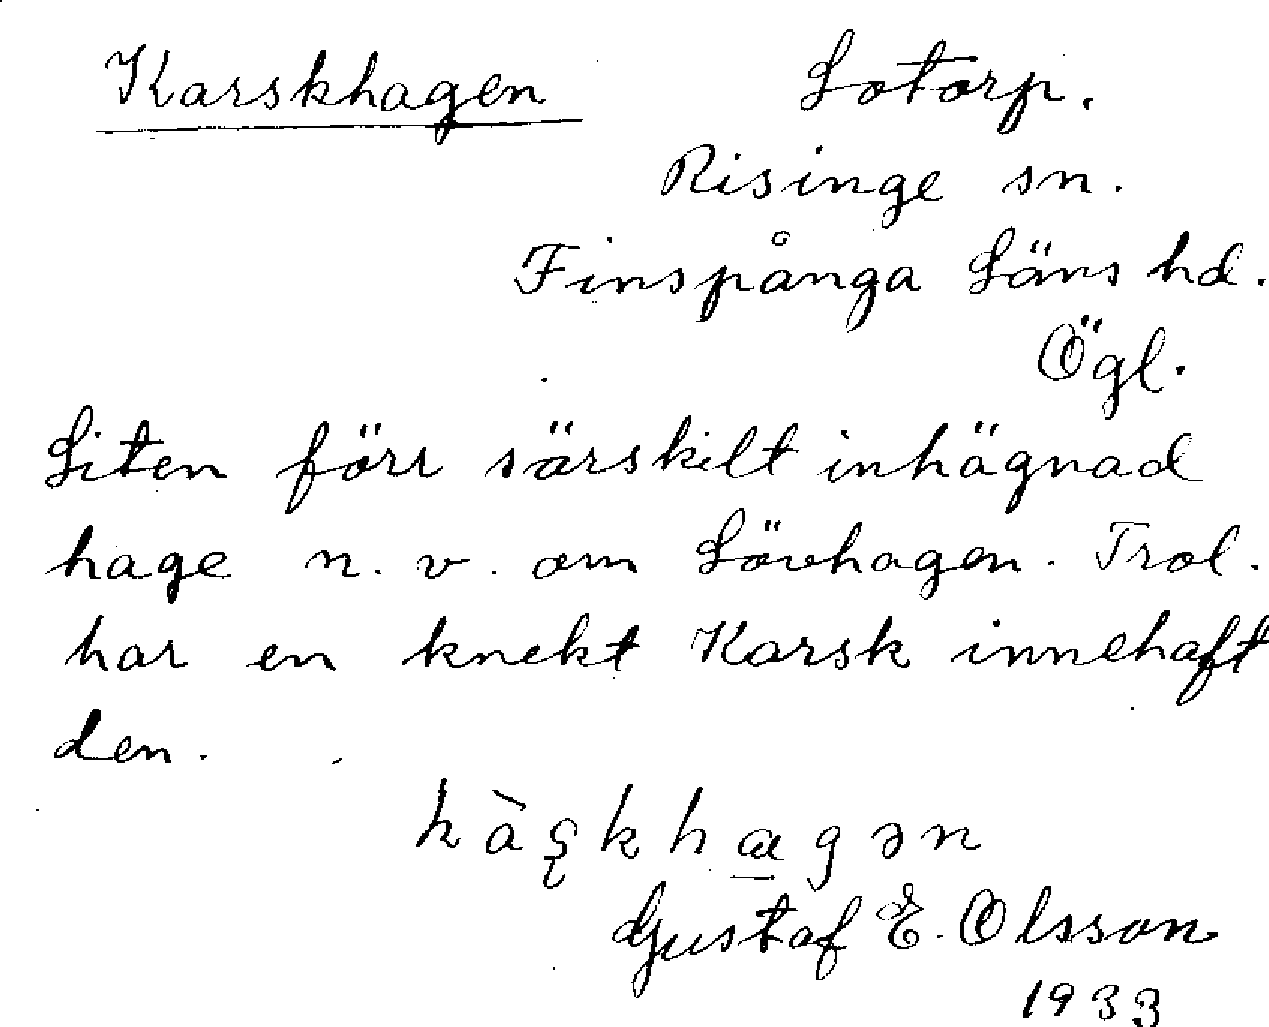 Karskhagen Lotorp.
Risinge sn.
Finspånga Läns hd.
Ögl.
Liten förr särskilt inhägnad
hage n. v. om Lövhagen. Trol.
har en knekt Karsk innehaft
den.
Gustaf E. Olsson
1933